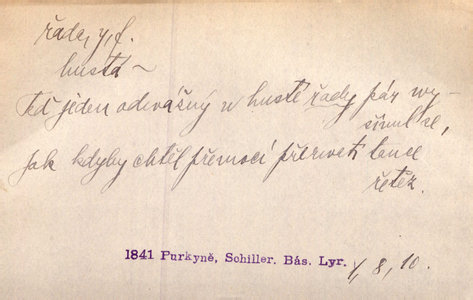 řada, y, f.
hustá ~
Teď jeden odvážný w husté řady pár wy-
šinul se,
jak kdyby chtěl přemocí přerwati tance
řetěz.
1841 Purkyně, Schiller. Bás. Lyr. 1, 8, 10.